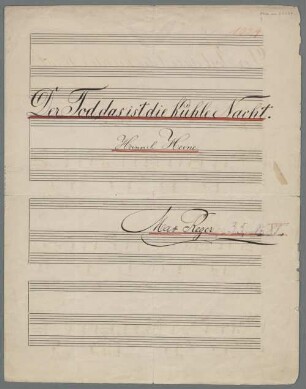 Der Tod das ist die kühle Nacht.
Heinrich Heine
Max Reger